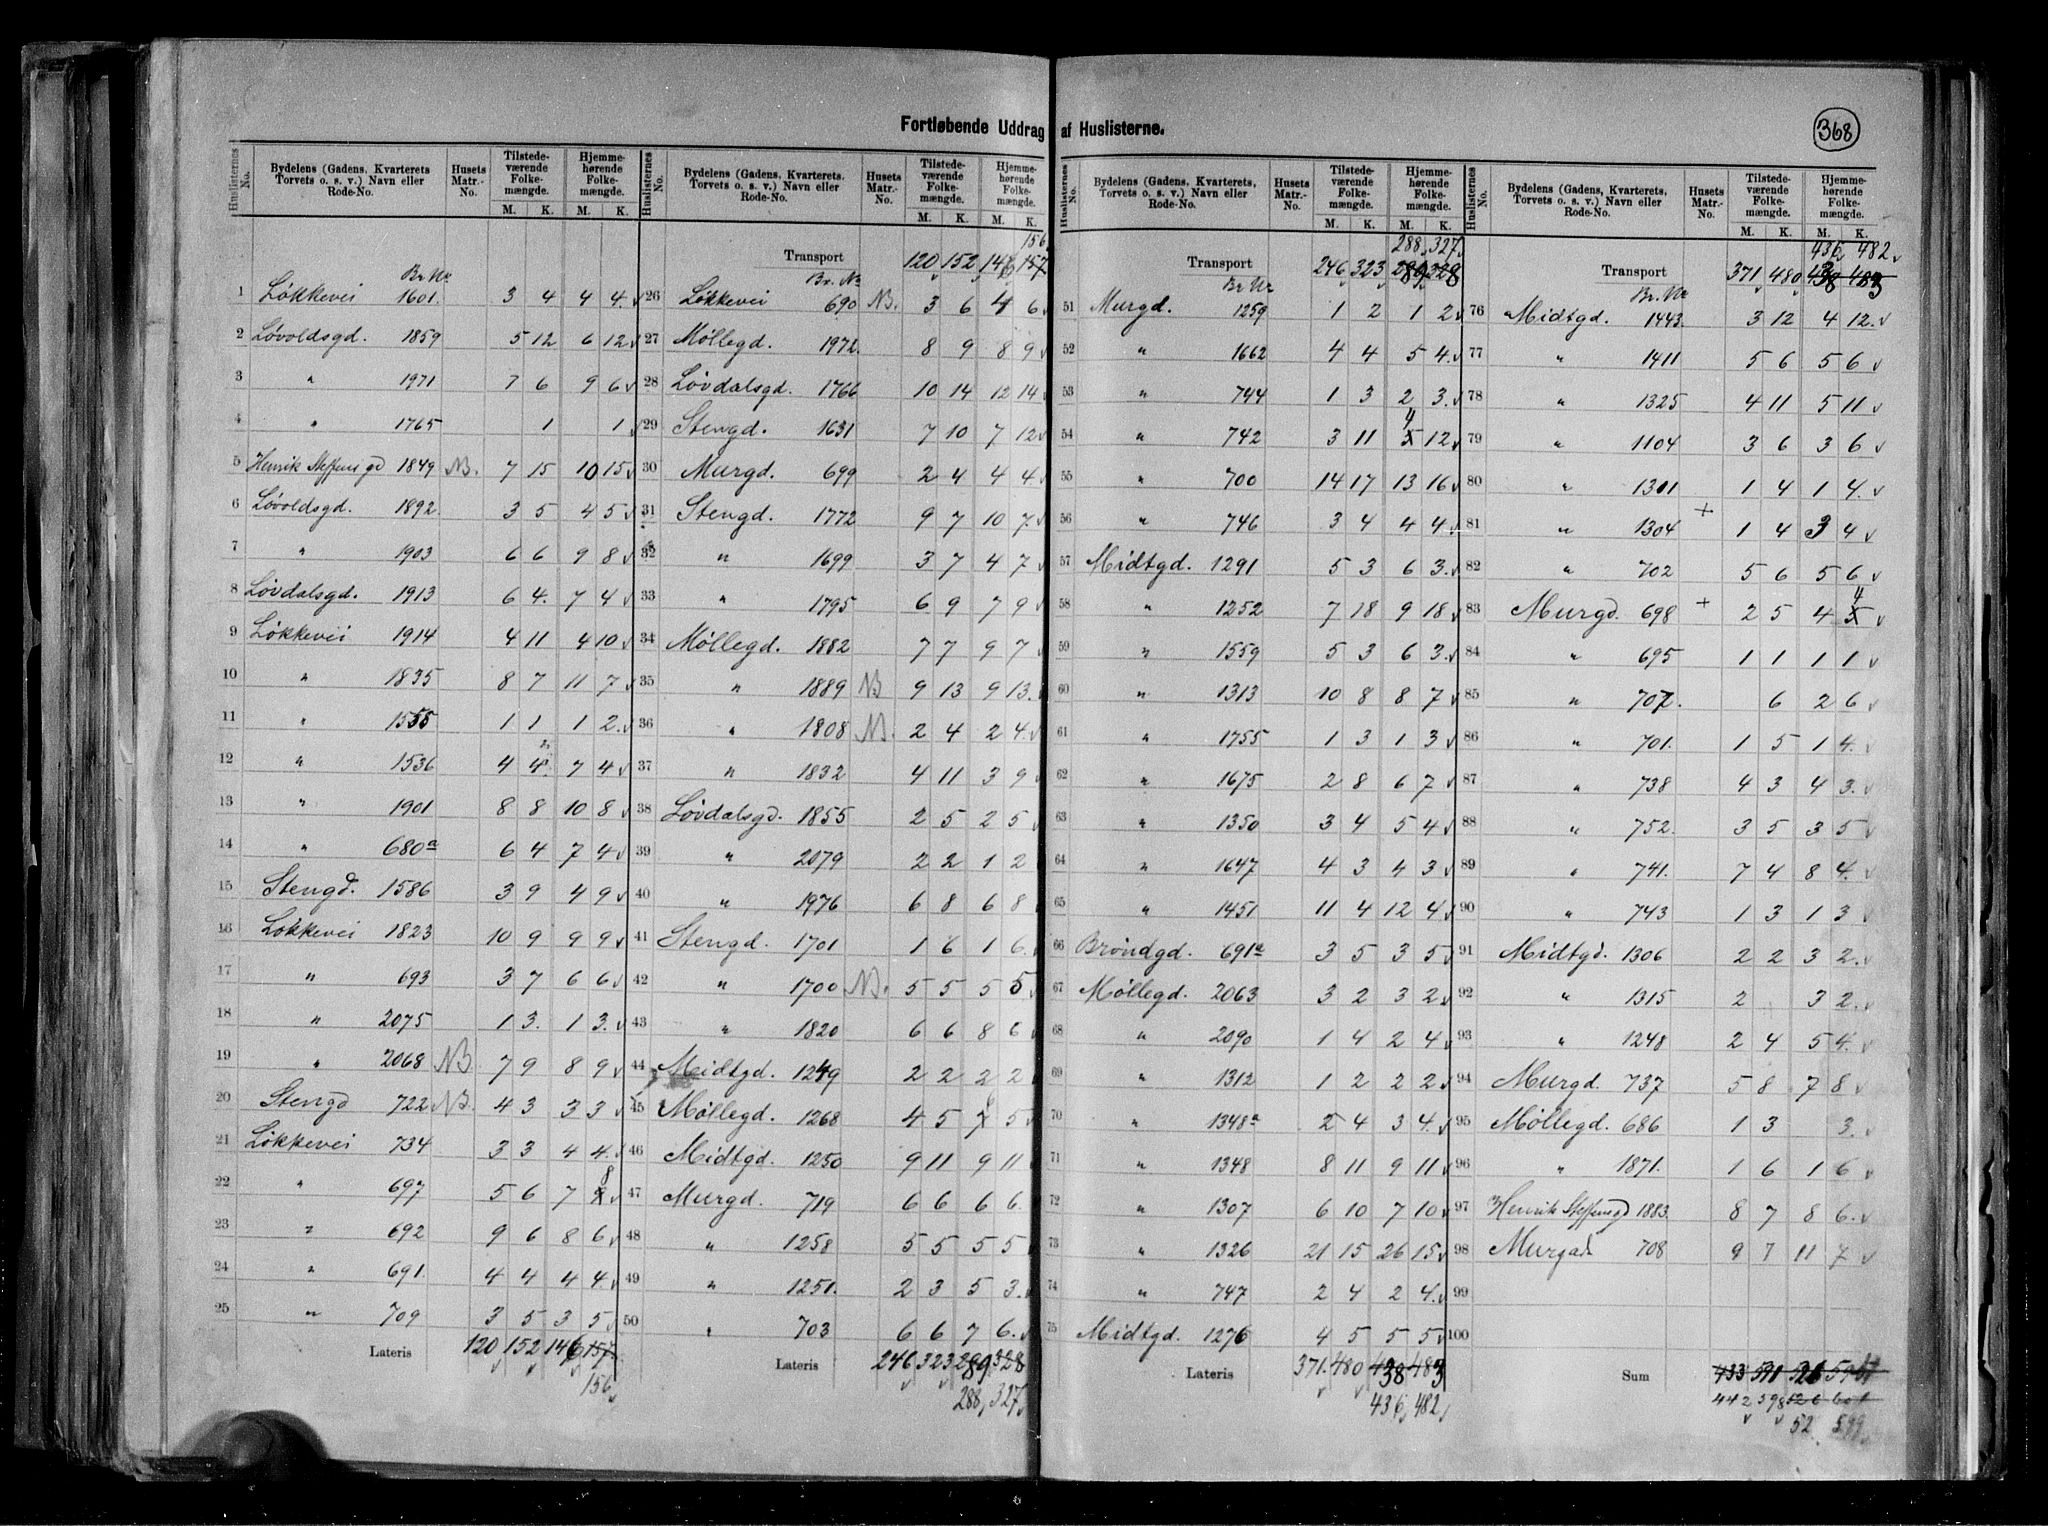 Fortløbende Uddrag af Huslisterne.
368
Huslisternes No. | Bydelens (Gadens, Kvarterets, Torvets o. s. v.) Navn eller Rode-No. | Husets Matr.-No. | Tilstedeværende Folkemængde. M. K. | Hjemmehørende Folkemængde. M. K.
Br. Nr
1 Løkkevei 1601. 3 4 4 4.
2 Løvoldsgd. 1859 5 12 6 12
3 " 1971 7 6 9 6
4 " 1765 1 1
5 Henrik Steffensgd 1849 NB. 7 15 10 15
6 Løvoldsgd. 1892 3 5 4 5
7 " 1903 6 6 9 8
8 Løvdalsgd. 1913 6 4. 7 4
9 Løkkevei 1914 4 11 4 10
10 " 1835 8 7 11 7
11 " 1555 1 1 1 2.
12 " 1536 4 4 7 4
13 " 1901 8 8 10 8
14 " 680a 6 4 7 4
15 Stengd. 1586 3 9 4 9
16 Løkkevei 1823 10 9 9 9
17 " 693 3 7 6 6
18 " 2075 1 3. 1 3.
19 " 2068 NB 7 9 8 9
20 Stengd 722 NB. 4 3 3 3
21 Løkkevei 734 3 3 4 4.
22 " 697 5 6 7 8
23 " 692 9 6 8 6
24 " 691. 4 4 4 4
25 " 709 3 5 3 5
Lateris 120 152 146 157
156
Huslisternes No. | Bydelens (Gadens, Kvarterets, Torvets o. s. v.) Navn eller Rode-No. | Husets Matr.-No. | Tilstedeværende Folkemængde. M. K. | Hjemmehørende Folkemængde. M. K.
156
Transport 120 152 146 157
Br. Nr
26 Løkkevei 690 NB. 3 6 4 6
27 Møllegd. 1972. 8 9 8 9
28 Løvdalsgd. 1766 10 14 12 14
29 Stengd. 1631 7 10 7 12
30 Murgd. 699 2 4 4 4
31 Stengd. 1772 9 7 10 7
32 " 1699 3 7 4 7
33 " 1795 6 9 7 9
34 Møllegd. 1882 7 7 9 7
35 " 1889 NB 9 13 9 13.
36 " 1808 NB. 2 4 2 4.
37 " 1832 4 11 3 9
38 Løvdalsgd. 1855 2 5 2 5
39 " 2079 2 2 1 2
40 " 1976 6 8 6 8
41 Stengd. 1701 1 6 1 6.
42 " 1700 NB. 5 5 5 5
43 " 1820 6 6 8 6
44 Midtgd. 1249 2 2 2 2
45 Møllegd. 1268 4 5 6 5
46 Midtgd. 1250 9 11 9 11
47 Murgd. 719 6 6 6 6
48 " 1258 5 5 5 5
49 " 1251. 2 3 5 3.
50 " 703 6 6 7 6.
Lateris 246 323 289 328
288 327
Huslisternes No. | Bydelens (Gadens, Kvarterets, Torvets o. s. v.) Navn eller Rode-No. | Husets Matr.-No. | Tilstedeværende Folkemængde. M. K. | Hjemmehørende Folkemængde. M. K.
288 327
Transport 246 323 289 328
Br. Nr
51 Murgd. 1259 1 2 1 2
52 " 1662 4 4 5 4.
53 " 744 1 3 2 3.
54 " 742 3 11 4 12
55 " 700 14 17 13 16
56 " 746 3 4 4 4.
57 Midtgd. 1291 5 3 6 3.
58 " 1252 7 18 9 18
59 " 1559 5 3 6 3.
60 " 1313 10 8 8 7
61 " 1755 1 3 1 3
62 " 1675 2 8 6 7
63 " 1350 3 4 5 4
64 " 1647 4 3 4 3
65 " 1451 11 4 12 4
66 Brøndgd. 691a 3 5 3 5
67 Møllegd. 2063 3 2 3 2
68 " 2090 1 4 2 4
69 " 1312 1 2 2 2
70 " 1348a 2 4 3 4.
71 " 1348 8 11 9 11
72 " 1307 6 10 7 10
73 " 1326 21 15 26 15
74 " 747 2 4 2 4.
75 Midtgd. 1276 4 5 5 5
Lateris 371. 480 438 483
436 482
Huslisternes No. | Bydelens (Gadens, Kvarterets, Torvets o. s. v.) Navn eller Rode-No. | Husets Matr.-No. | Tilstedeværende Folkemængde. M. K. | Hjemmehørende Folkemængde. M. K.
436 482
Transport 371 480 438 483
Br. Nr
76 Midtgd. 1443. 3 12 4 12.
77 " 1411 5 6 5 6
78 " 1325 4 11 5 11
79 " 1104 3 6 3 6
80 " 1301 1 4 1 4.
81 " 1304 + 1 4 3 4
82 " 702 5 6 5 6
83 Murgd. 698 + 2 5 4 4
84 " 695 1 1 1 1
85 " 707. 6 2 6
86 " 701. 1 5 1 4.
87 " 738 4 3 4 3.
88 " 752. 3 5 3 5
89 " 741. 7 4 8 4.
90 " 743 1 3 1 3
91 Midtgd. 1306 2 2 3 2.
92 " 1315 2 3 2.
93 " 1248 2 4 5 4.
94 Murgd. 737 5 8 7 8
95 Møllegd. 686 1 3 3.
96 " 1871. 1 6 1 6
97 Henrik Steffensgd 1883. 8 7 8 6.
98 Murgad. 708 9 7 11 7
99
100
Sum 433 591 526
442 598 526 601
52 599